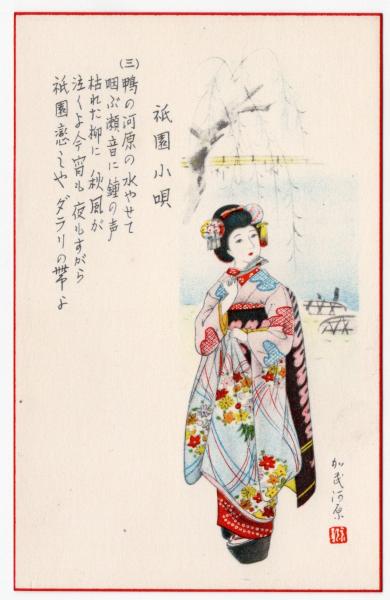 祇園小唄
(三)鴨の河原の水やせて
咽ぶ瀬音に鐘の声
枯れた柳に秋風が
泣くよ今宵も夜もすがら
祇園恋しや ダラリの帯よ
加茂河原